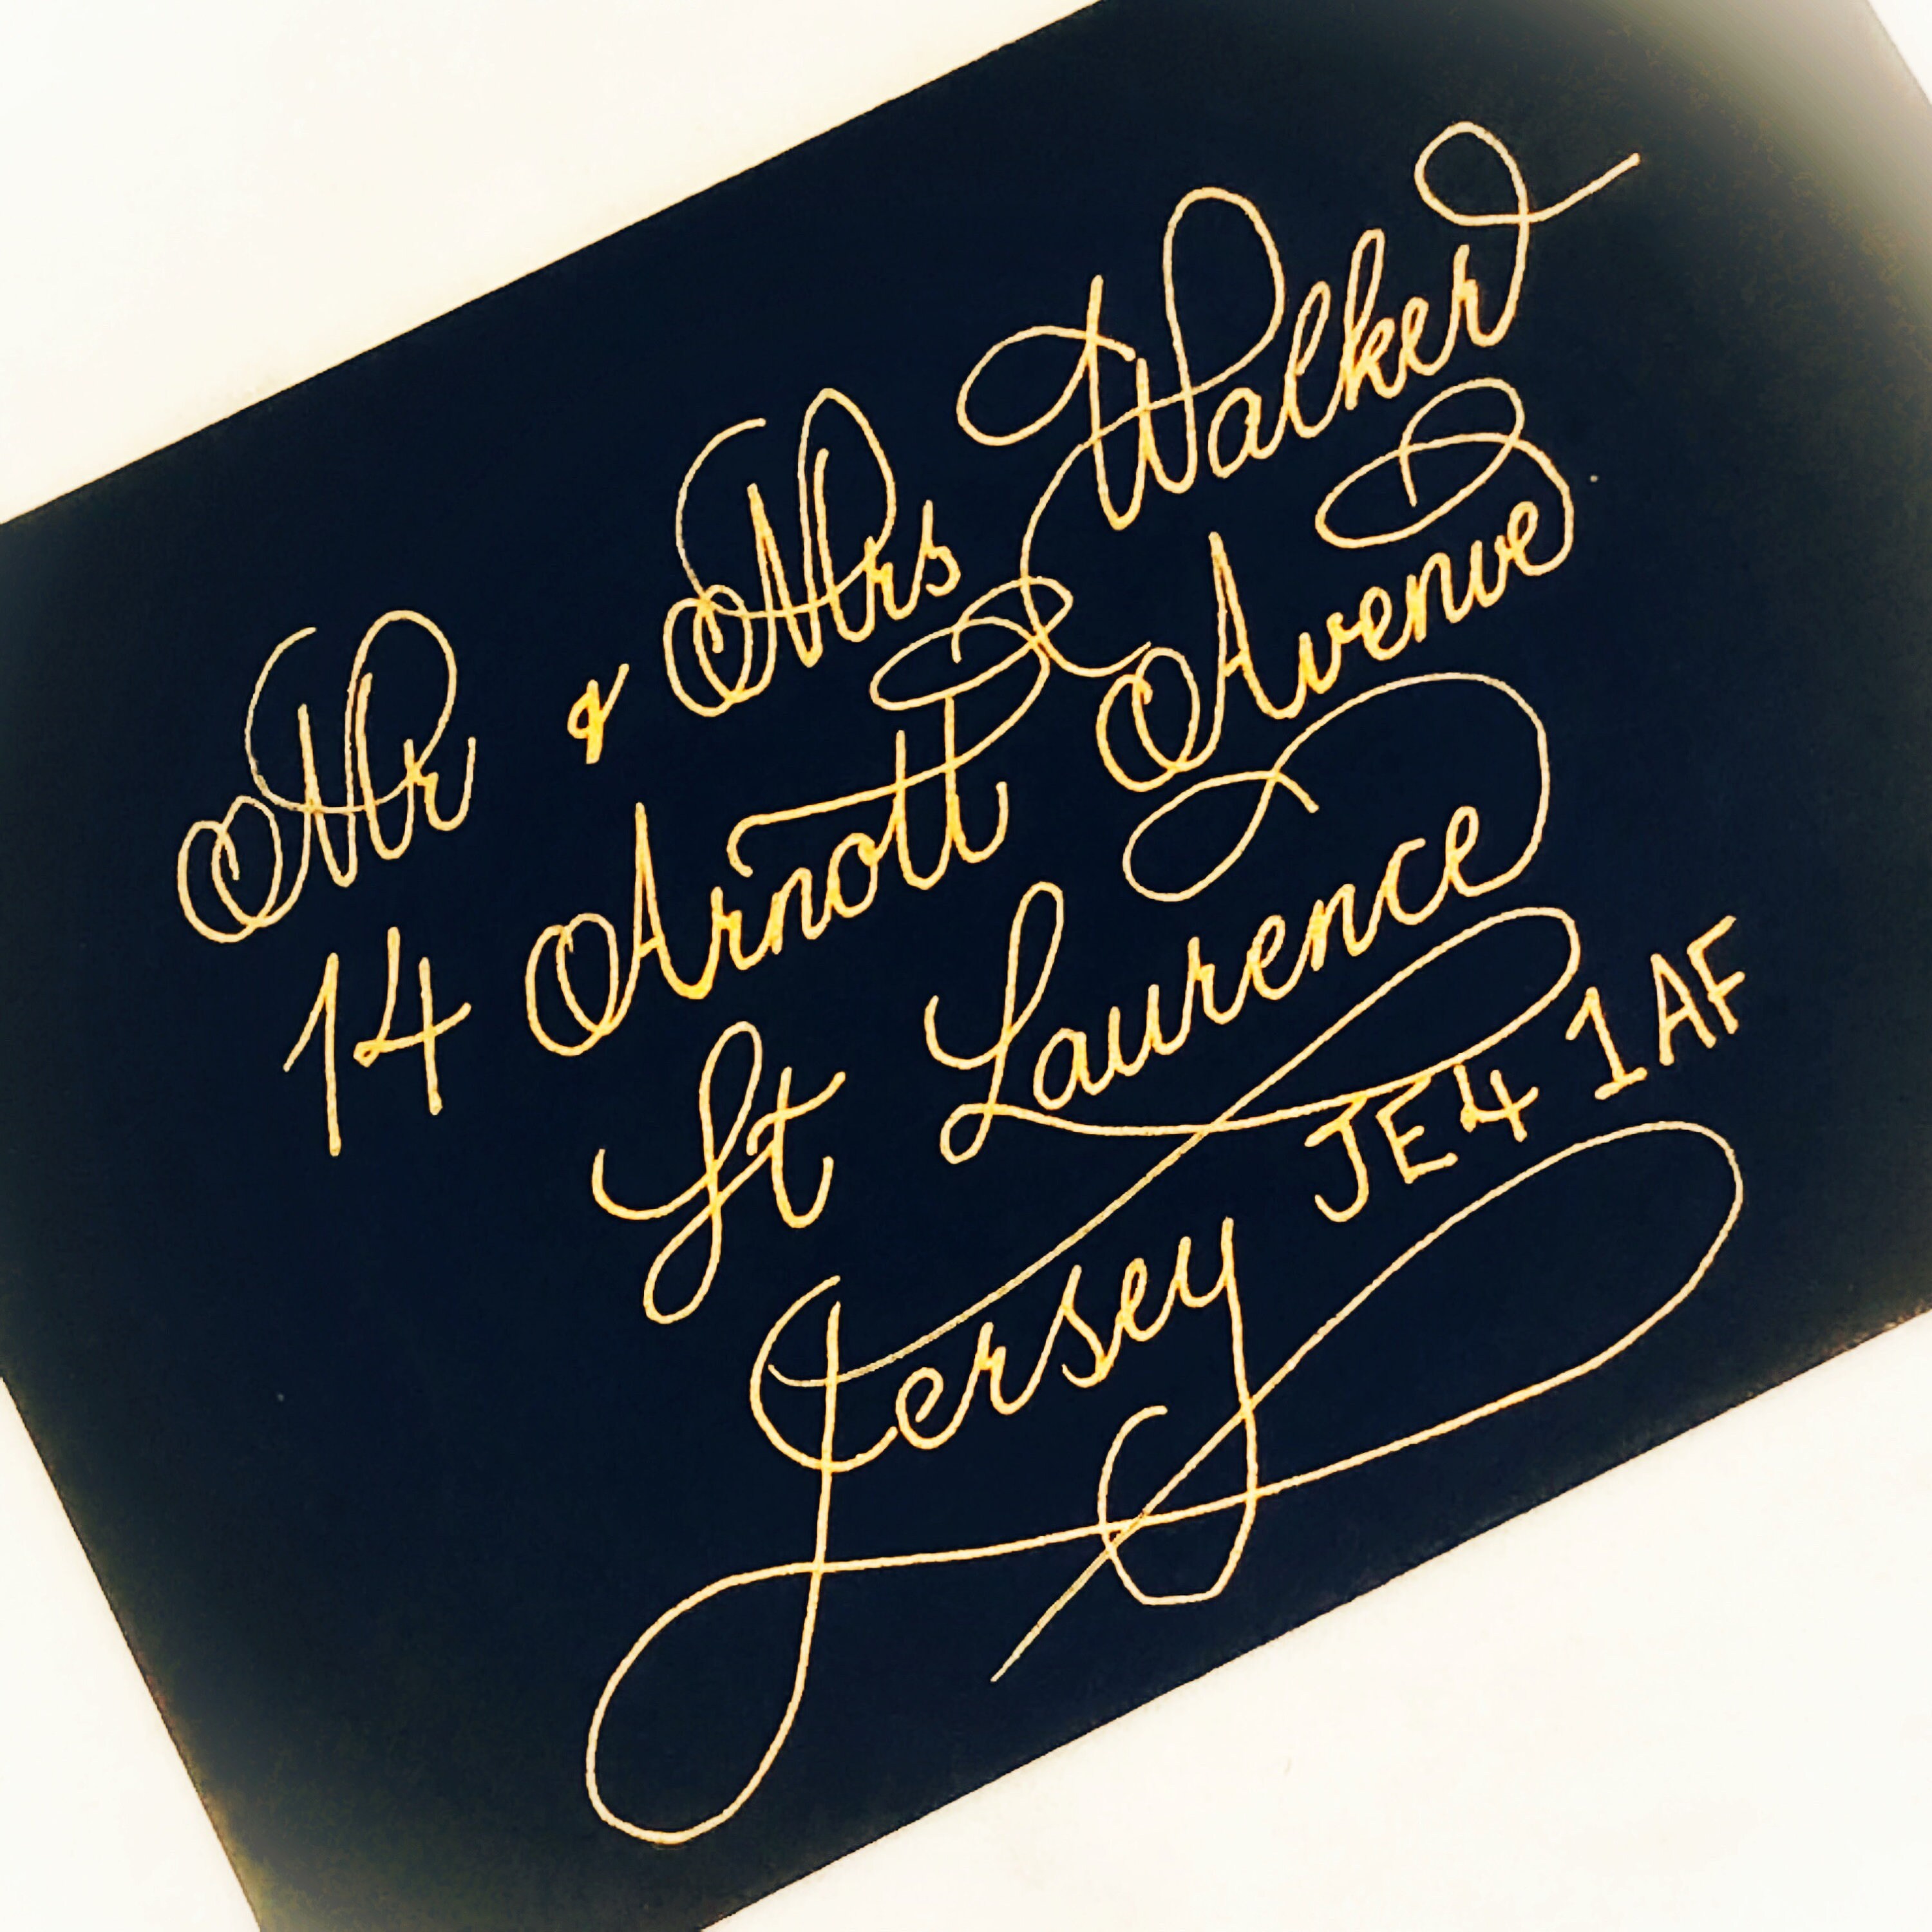 Mr & Mrs Walker
14 Arnott Avenue
St Laurence
Jersey JE4 1AF